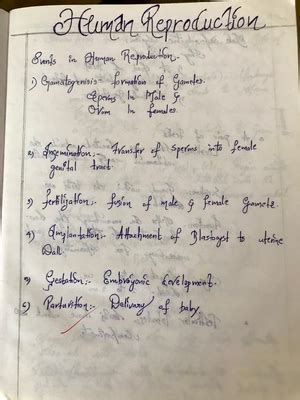 Human Reproduction
Events in Human Reproduction.
1) Gamatogenisis- formation of Gametes.
Sperms In Male &
Ovum In females.
2) Insemination:- Transfer of sperms into female
genital tract.
3) fertilization:- fusion of male & female Gamete.
4) Implantation:- Attachment of Blastocyst to uterine
Wall.
5) Gestation:- Embryonic development.
6) Parturition:- Delivery of baby.